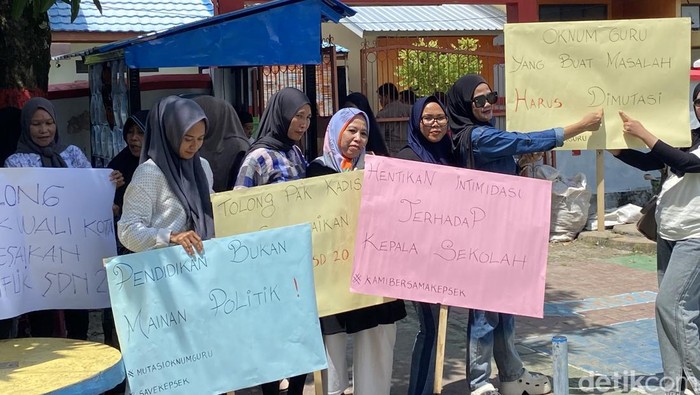 OKNUM GURU
YANG BUAT MASALAH
HARUS DIMUTASI
GURU
HENTIKAN INTIMIDASI
TERHADAP
KEPALA SEKOLAH
#KAMIBERSAMAKEPSEK
TOLONG PAK KADIS
SD 20
PENDIDIKAN BUKAN
MAINAN POLITIK !
#MUTASIOKNUMGURU
SAVEKEPSEK
LONG
WALI KOTA
ESAIKAN
SDN 2
detikcom